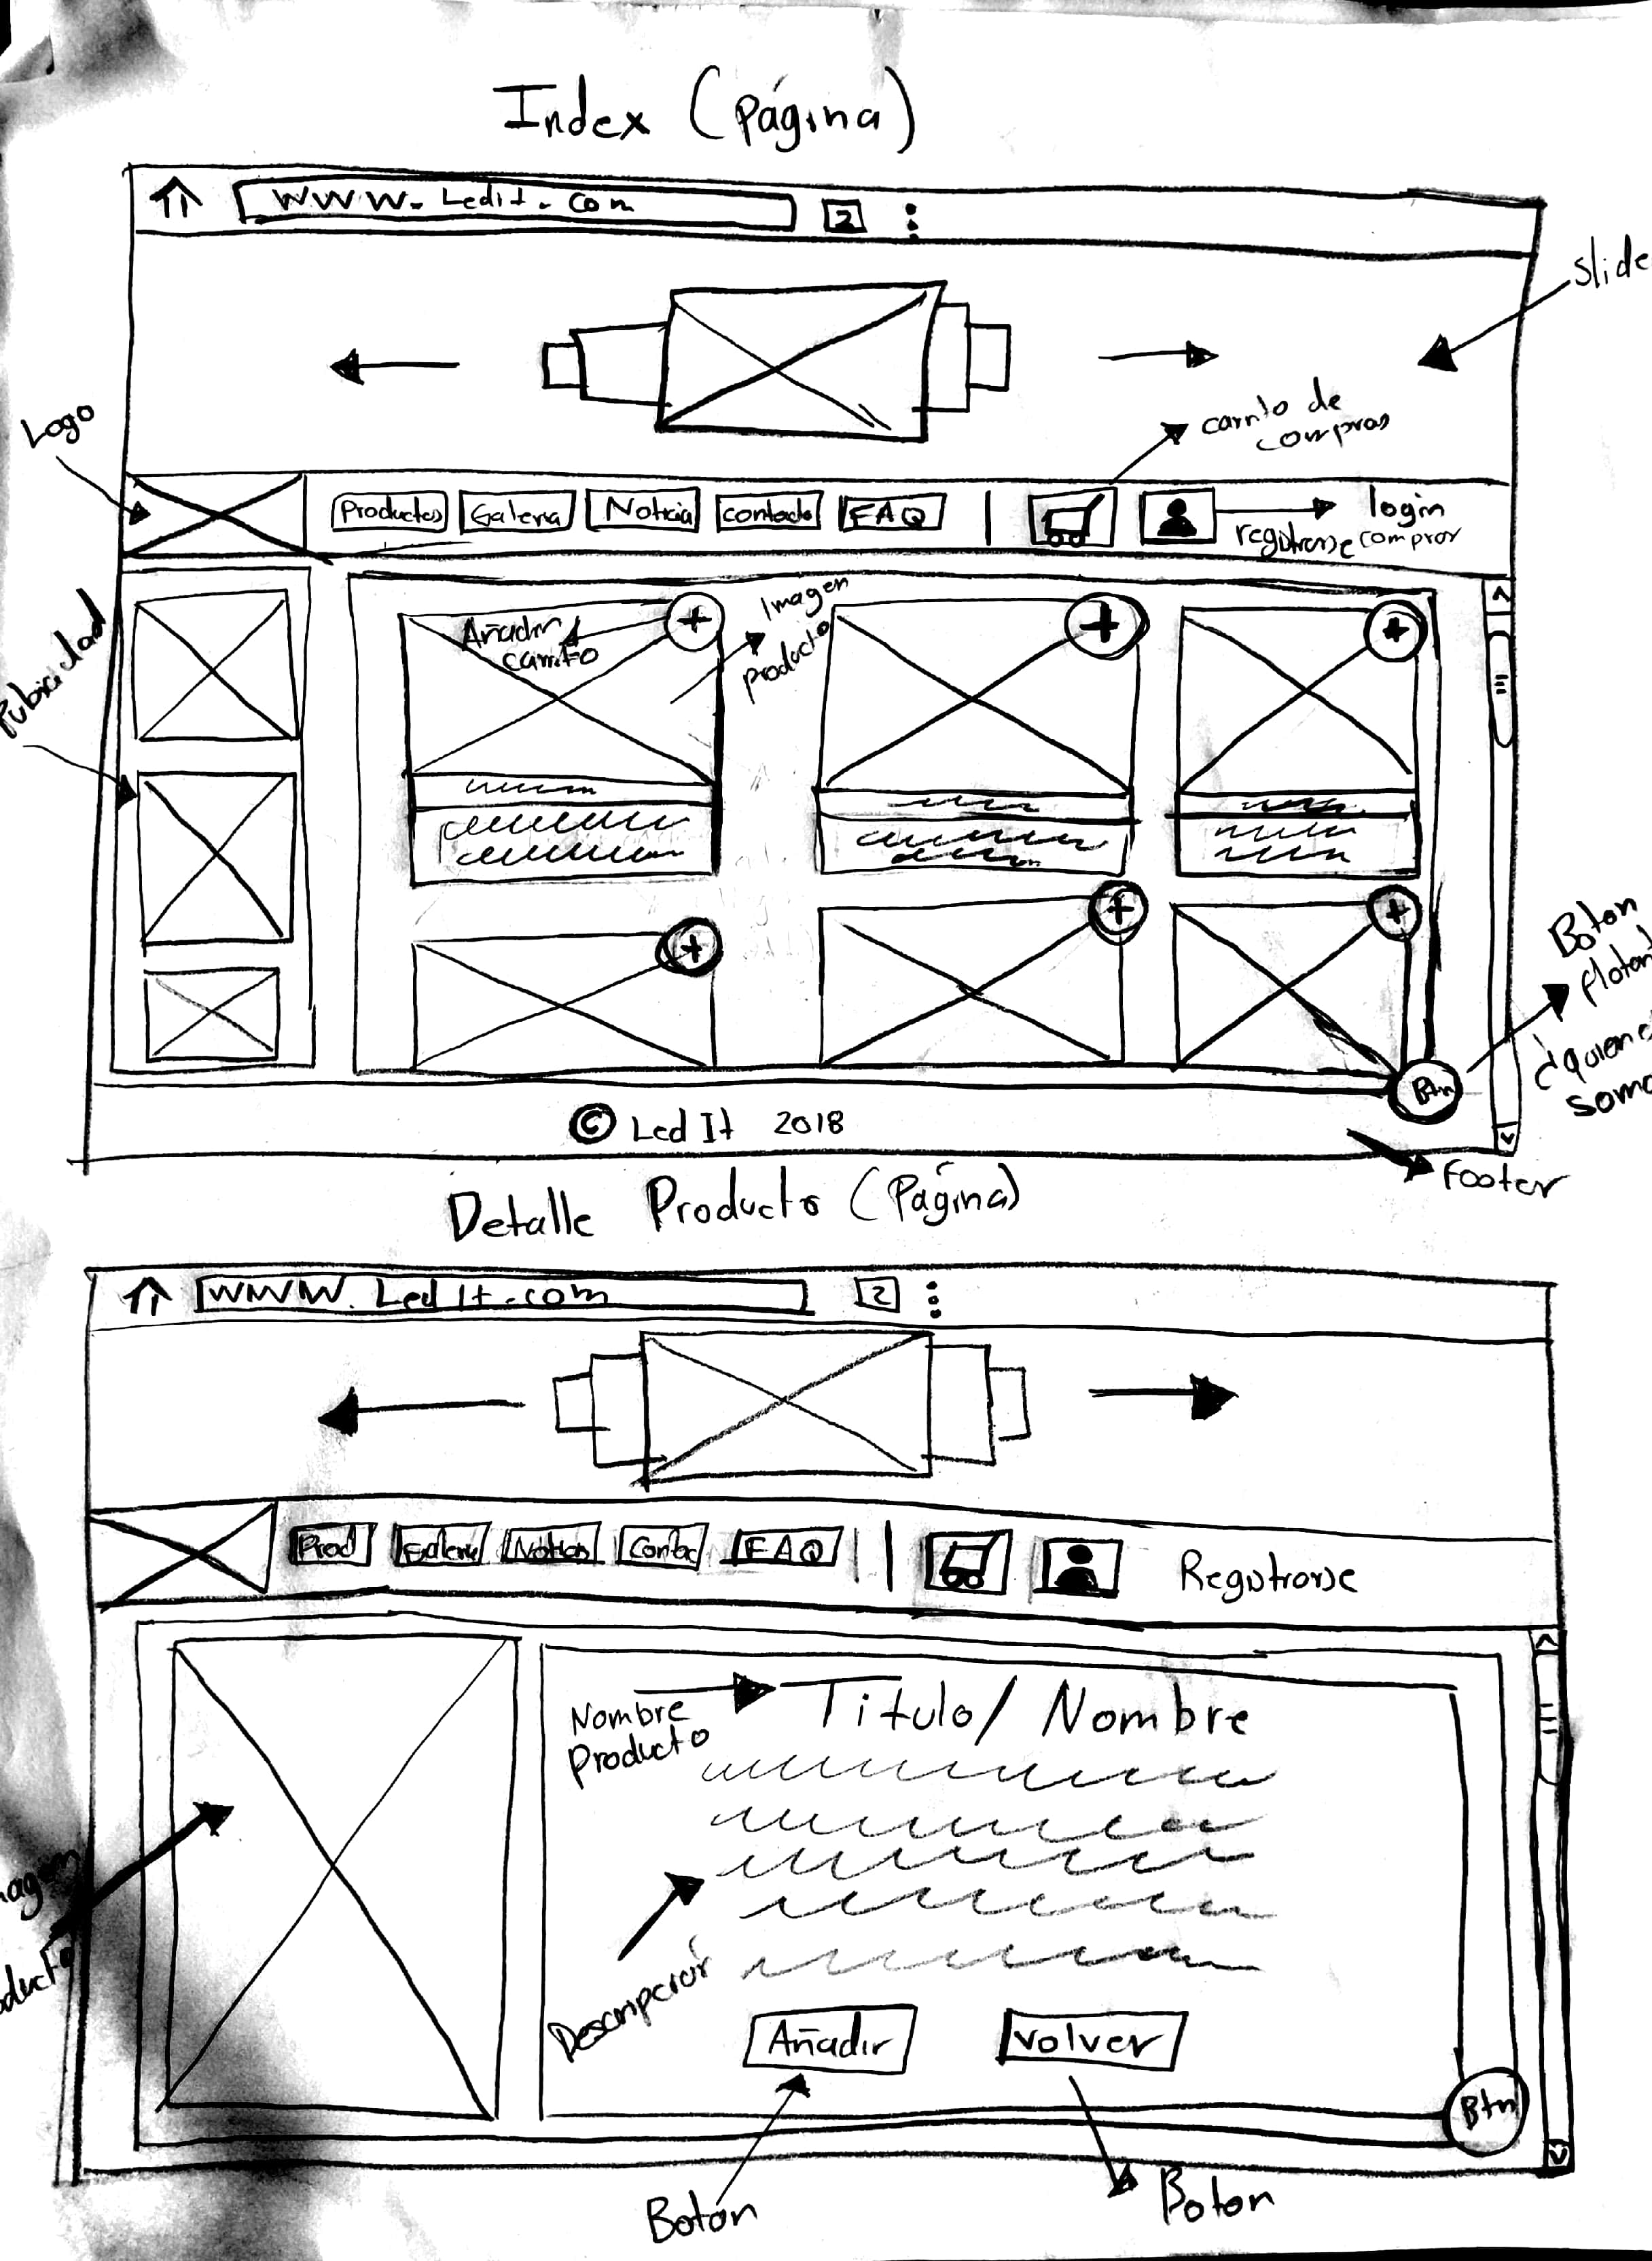 Index (Página)
www. Ledit. com
2
slide
Logo
carrito de
compras
Productos
Galeria
Noticia
contacto
FAQ
login
registrarse comprar
Añadir
carrito
Imagen
producto
Botón
Btn
© Led It 2018
Footer
Detalle Producto (Página)
www. Led It .com
2
Prod
Galeria
Contac
FAQ
Registrarse
Nombre
Producto
Titulo/ Nombre
Añadir
Volver
Btn
Botón
Boton